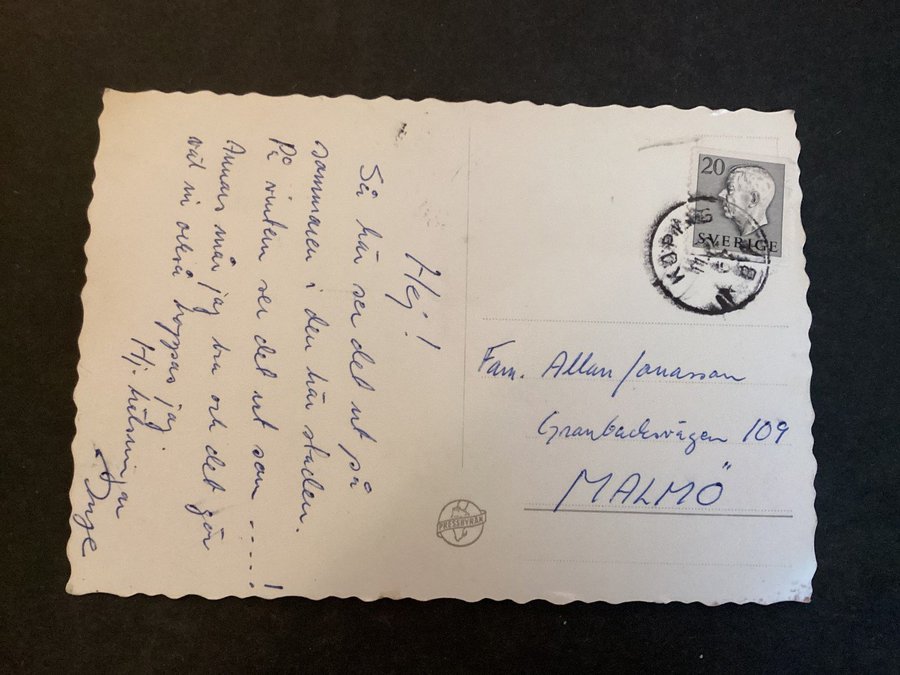 Hej!
Så här ser det ut på
sommaren i den här staden.
På vintern ser det ut som.....!
Annars mår jag bra och det gör
väl ni också hoppas jag.
Hj. hälsningar
Inge
20
SVERIGE
KÖPING
Fam. Allan Jonasson
Granbacksvägen 109
MALMÖ
PRESSBYRÅN